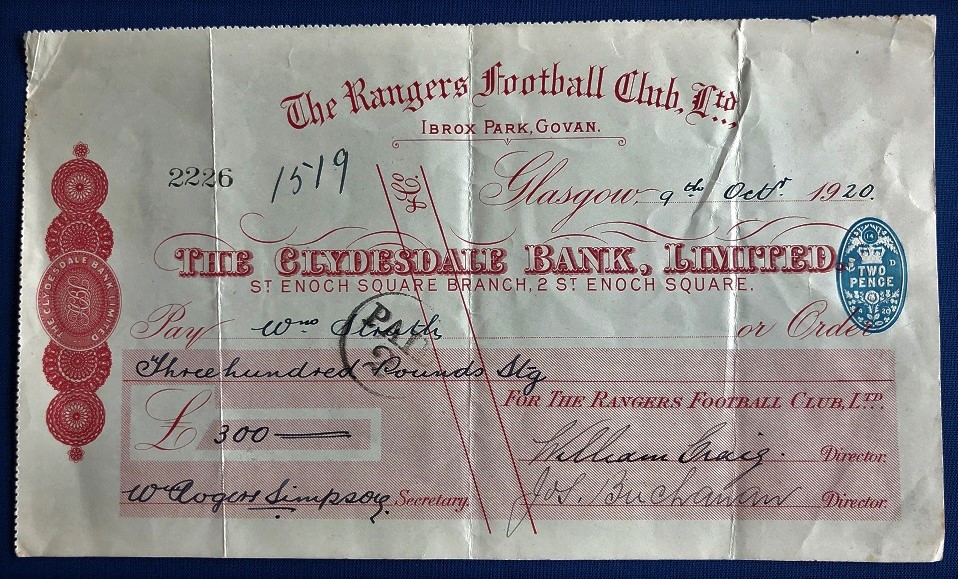 The Rangers Football Club, Ltd.,
IBROX PARK, GOVAN.
2226 1519 & Co. Glasgow, 9th Octr 1920.
THE CLYDESDALE BANK, LIMITED.
ST ENOCH SQUARE BRANCH, 2 ST ENOCH SQUARE.
TWO PENCE
THE CLYDESDALE BANK LIMITED
Pay Wm Struth or Order
PAID
Three hundred Pounds Stg
FOR THE RANGERS FOOTBALL CLUB, LTD.
£ 300
William Craig. Director.
Wm Rogers Simpson, Secretary. Jos. Buchanan Director.